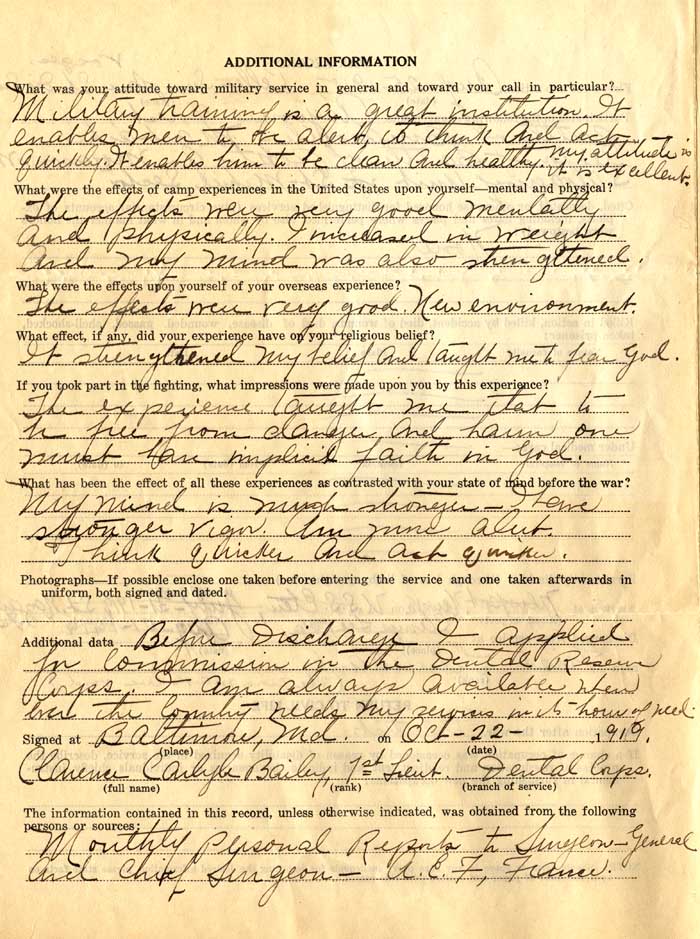 ADDITIONAL INFORMATION
What was your attitude toward military service in general and toward your call in particular?
Military training is a great institution. It
enables men to be alert, to think and act
quickly. It enables him to be clean and healthy. My attitude is
it is excellent.
What were the effects of camp experiences in the United States upon yourself—mental and physical?
The effects were very good mentally
and physically. I increased in weight
and my mind was also strengthened.
What were the effects upon yourself of your overseas experience?
The effects were very good. New environment.
What effect, if any, did your experience have on your religious belief?
It strengthened my belief and taught me to fear God.
If you took part in the fighting, what impressions were made upon you by this experience?
The experience taught me that to
be free from danger and harm one
must have implicit faith in God.
What has been the effect of all these experiences as contrasted with your state of mind before the war?
My mind is much stronger — I have
stronger vigor. Am more alert.
Think quicker and act quicker.
Photographs—If possible enclose one taken before entering the service and one taken afterwards in
uniform, both signed and dated.
Additional data Before Discharge I applied
for Commission in the Dental Reserve
Corps. I am always available when
ever the Country needs my services in its hour of need.
Signed at Baltimore, Md. on Oct-22- 1919.
(place) (date)
Clarence Carlyle Bailey, 1st Lieut. Dental Corps.
(full name) (rank) (branch of service)
The information contained in this record, unless otherwise indicated, was obtained from the following
persons or sources:
Monthly Personal Reports to Surgeon-General
and Chief Surgeon — A.E.F., France.